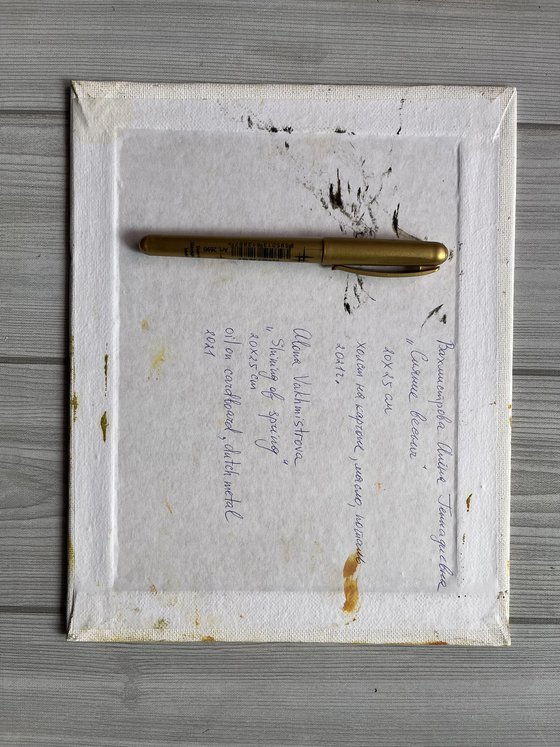 Вахмистрова Алёна Геннадиевна
"Сияние весны"
20х25 см
холст на картоне, масло, поталь
2021г.
Alona Vakhmistrova
"Shining of spring"
20x25 cm
oil on cardboard, dutch metal
2021